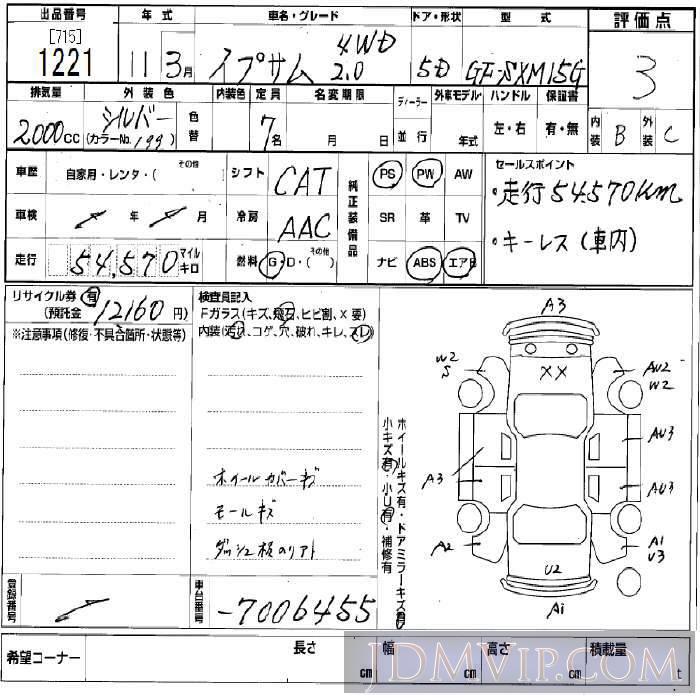 出品番号 年式 車名・グレード ドア・形状 型式 評価点
[715]
1221 11 3月 イプサム 4WD 2.0 5D GF-SXM15G 3
排気量 外装色 内装色 定員 名変期限 ディーラー 外車モデル ハンドル 保証書 内装 B 外装 C
2000cc シルバー (カラーNo. 199) 色替 7名 月 日 並行 年式 左・右 有・無
車歴 自家用・レンタ・( その他 ) シフト CAT 純正装備品 PS PW AW セールスポイント
・走行54,570km
車検 年 月 冷房 AAC SR 革 TV
・キーレス(車内)
走行 54,570 マイル キロ 燃料 G・D・( その他 ) ナビ ABS エアB
リサイクル券 有 (預託金 12160 円) 検査員記入
Fガラス(キズ、飛石、ヒビ割、X要)
※注意事項(修復・不具合箇所・状態等) 内装(汚れ、コゲ、穴、破れ、キレ、スレ)
ホイールカバーキズ
モールキズ
ダッシュ板のリアト
ホイールキズ有・ドアミラーキズ有
小キズ有・小U有・補修有
A3
W2
S
XX
AU2
W2
AU3
A3
AU3
A2
A1
U3
U2
A1
登録番号 車台番号 -7006455
希望コーナー 長さ cm 幅 cm 高さ cm 積載量 t
JDMVIP.COM